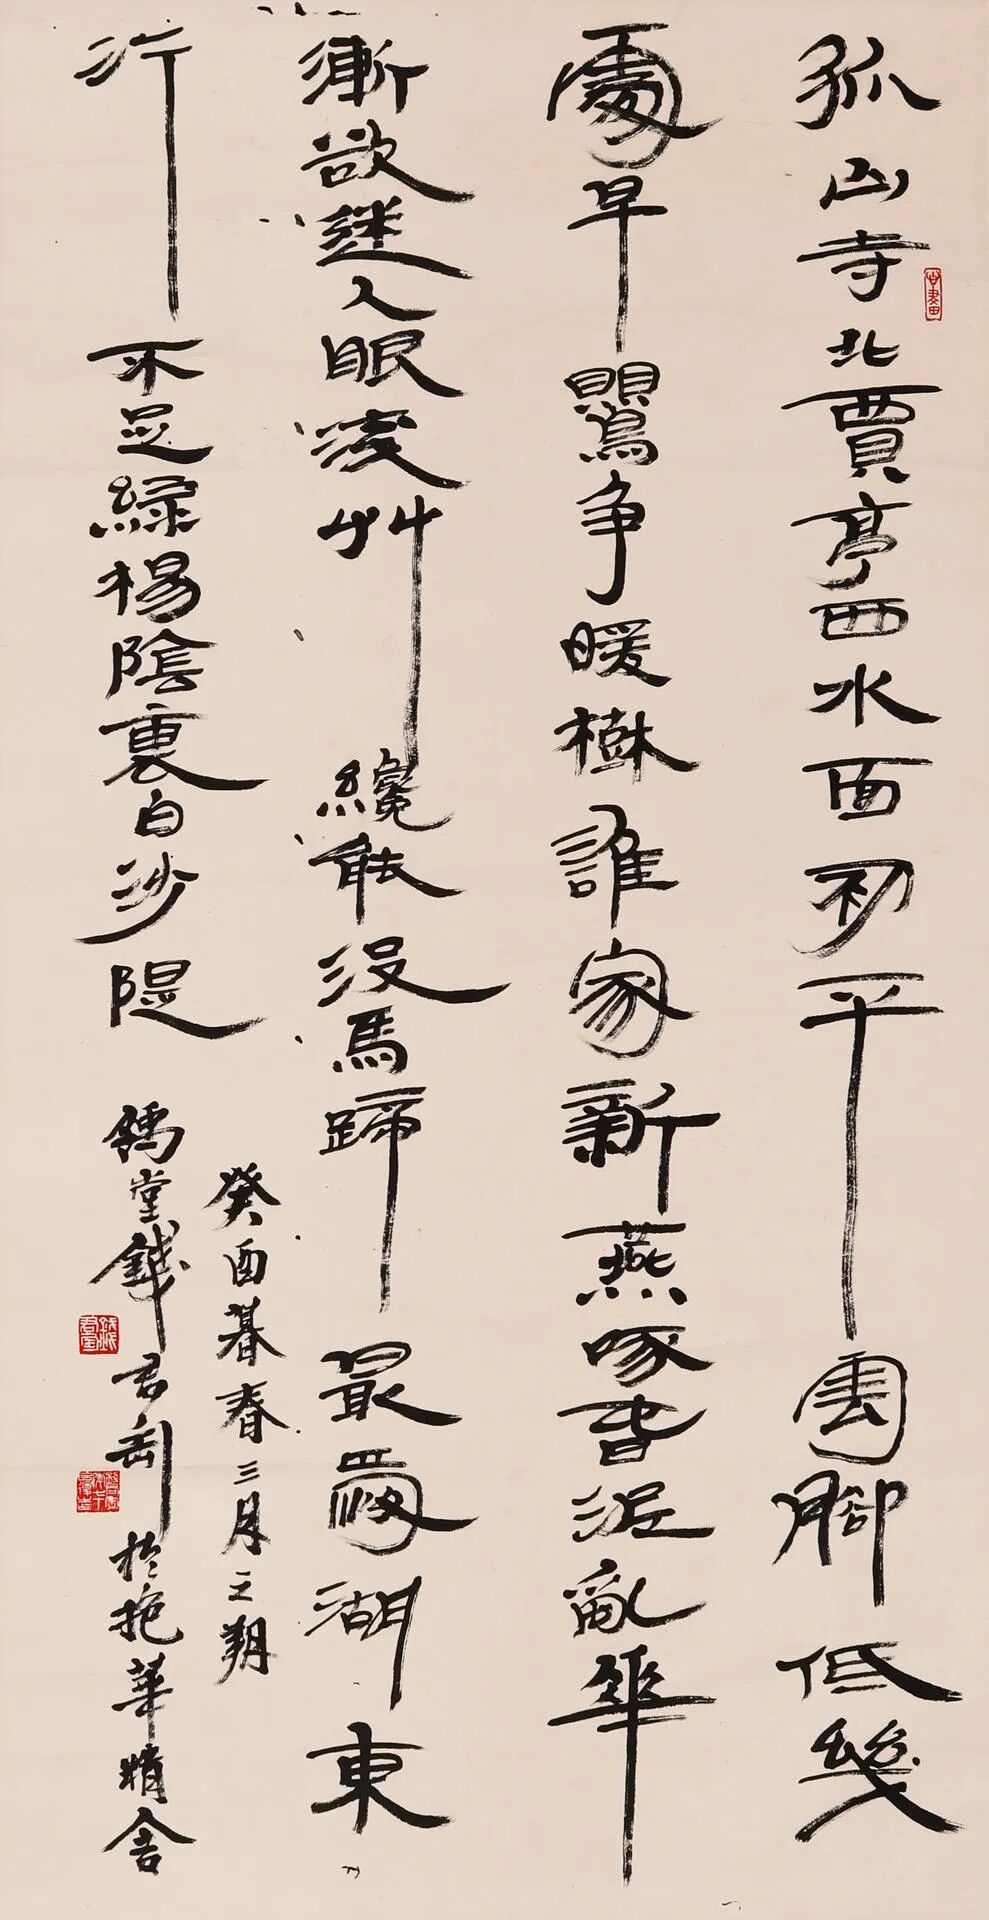 孤山寺北賈亭西水面初平雲腳低幾
處早鸎争暖樹誰家新燕啄春泥亂華
漸欲迷人眼淺艸纔能没馬蹄最愛湖東
行不足綠楊陰裏白沙隄
癸酉暮春三月之朔
豫堂錢君匋於抱華精舍